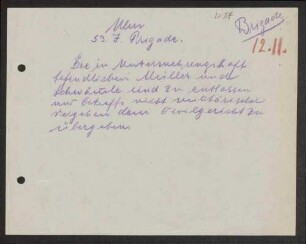 Brigade
12.11.
53. I. Brigade.
Die in Untersuchungshaft
befindlichen Müller und
sind zu entlassen
und nicht militärischer
Vergehen dem Zivilgericht zu
übergeben.